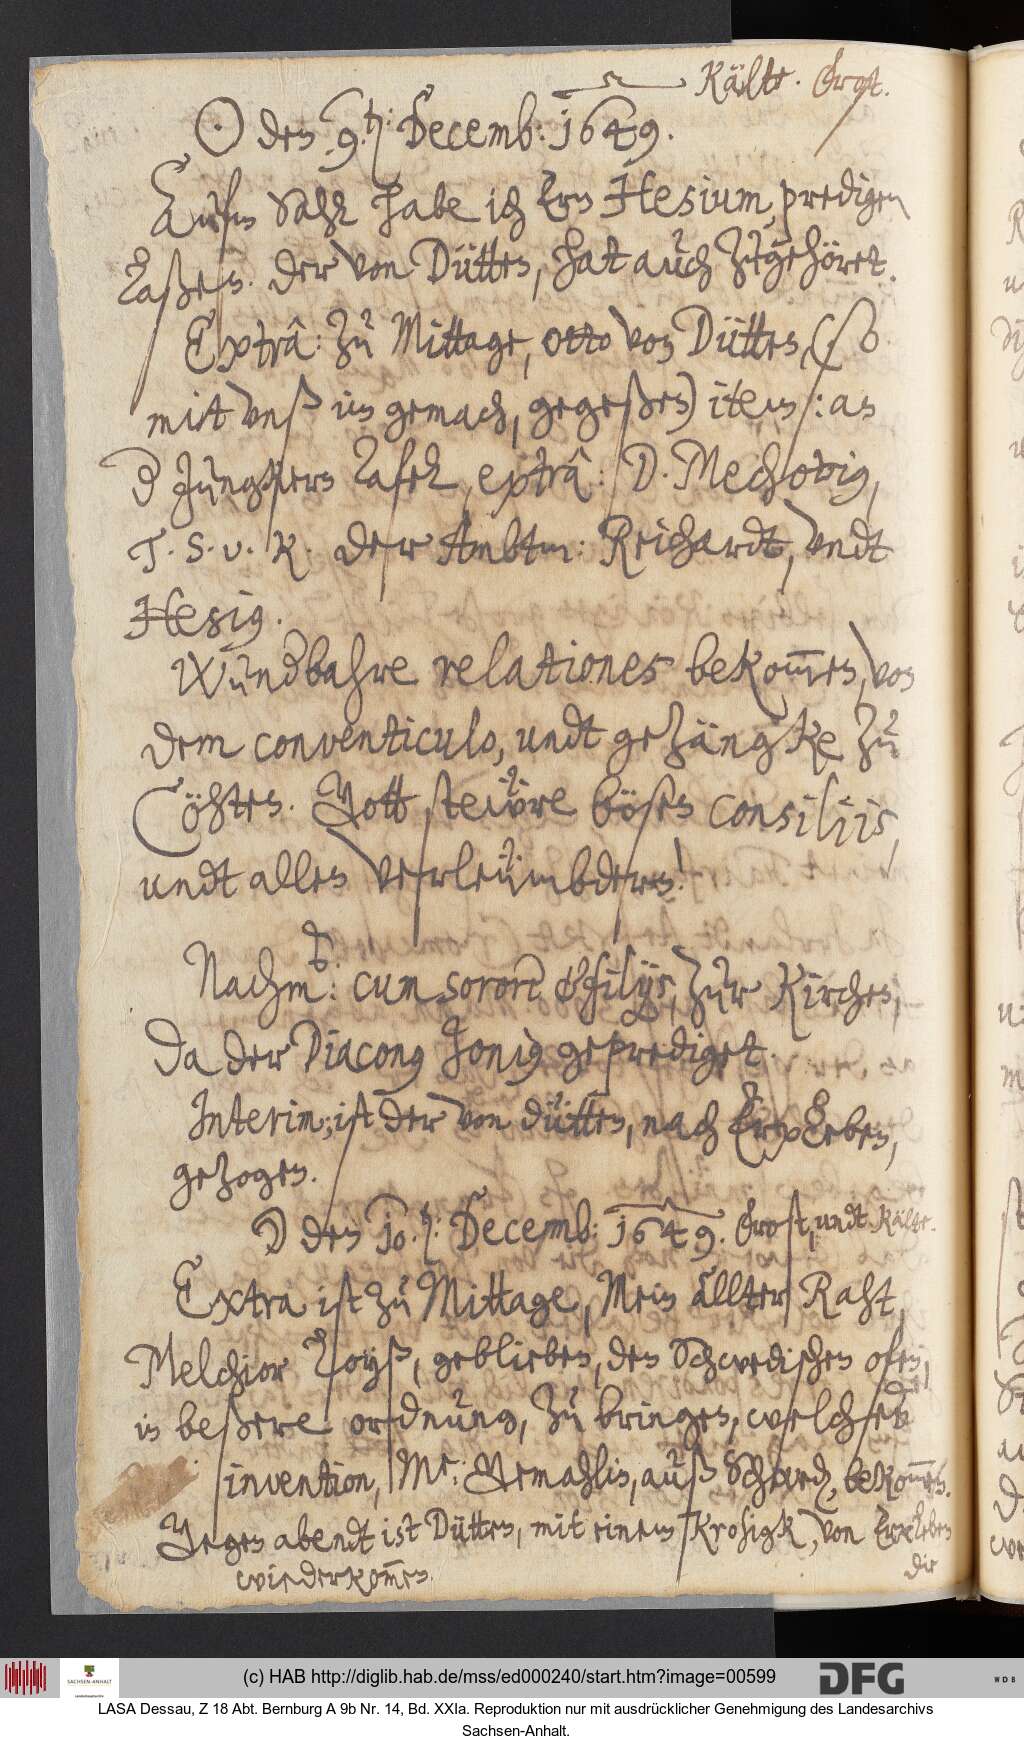 Kälte. Frost.
☉ den 9.ten: Decemb: 1649.
Aufm Sahl habe ich Ern Hesium, predigen
laßen. Der von Dütten, hat auch zugehöret.
Extrâ: zu Mittage, Otto von Dütten, (so
mit unß im gemach, gegeßen) item: an
d Jungkern Tafel, extrâ: D. Mechovius,
T. S. v. K. der Ambtm: Reichardt, undt
Hesius.
Wunderbahre relationes bekom̅en, von
dem conventiculo, undt gezängke zu
Cöhten. Gott stewre bösen consiliis,
undt allen verleümbdern!
Nachmt: cum sorore & filiis, zur Kirchen,
da der Diaconus Jonius geprediget.
Interim; ist der von Dütten, nach Erxleben,
gezogen.
☽ den 10.ten: Decemb: 1649. Frost, undt Kälte.
Extra ist zu Mittage, Mein ällter Raht,
Melchior Loyß, geblieben, den Schwedischen ofen,
in beßere ordnung, zu bringen, welchen die
invention, Me: Gemahlin, auß Schwed. bekom̅en.
Gegen abendt ist Dütten, mit einem Krosigk, von Erxleben
wiederkom̅en.
die
(c) HAB http://diglib.hab.de/mss/ed000240/start.htm?image=00599
SACHSEN-ANHALT
DFG
WDB
LASA Dessau, Z 18 Abt. Bernburg A 9b Nr. 14, Bd. XXIa. Reproduktion nur mit ausdrücklicher Genehmigung des Landesarchivs
Sachsen-Anhalt.